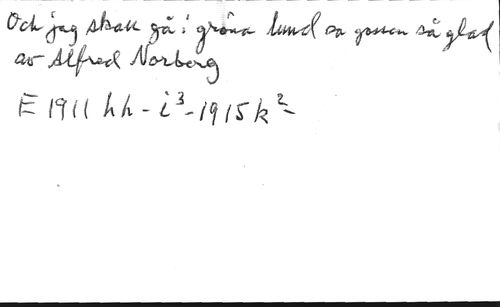 Och jag skall gå i gröna lund sa gossen så glad
av Alfred Norberg
E 1911 hh - i³ - 1915 k²-